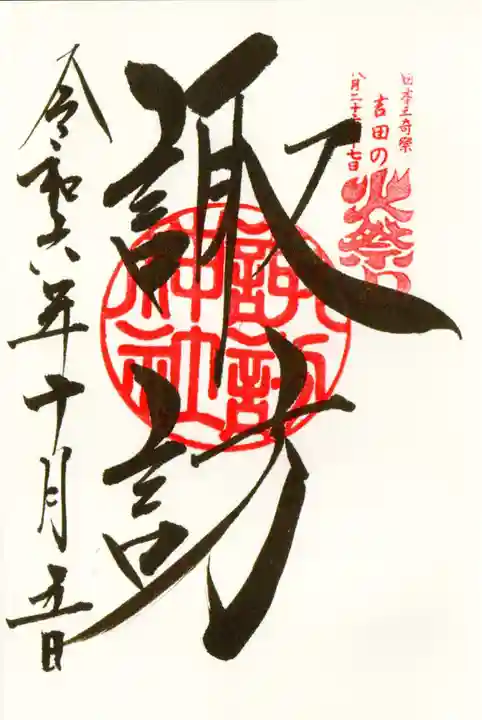 日本三奇祭
吉田の
火祭り
八月二十六・二十七日
諏訪
諏訪
神社
令和六年十月五日